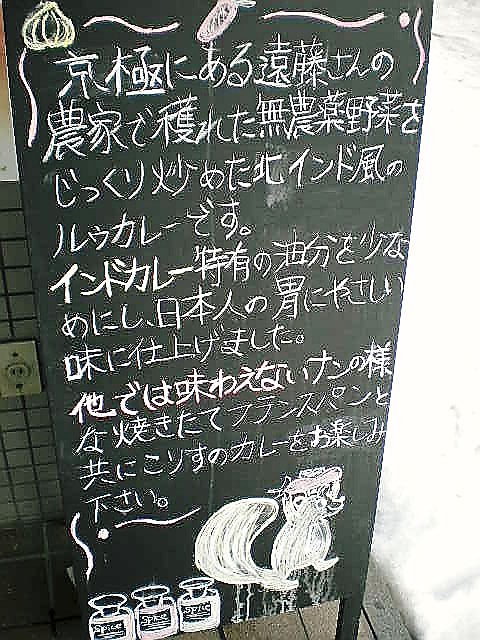 京極にある遠藤さんの
農家で穫れた無農薬野菜を
じっくり炒めた北インド風の
ルゥカレーです。
インドカレー特有の油分を少な
めにし、日本人の胃にやさしい
味に仕上げました。
他では味わえないナンの様
な焼きたてフランスパンと
共にこりすのカレーをお楽しみ
下さい。
spice
spice
spice